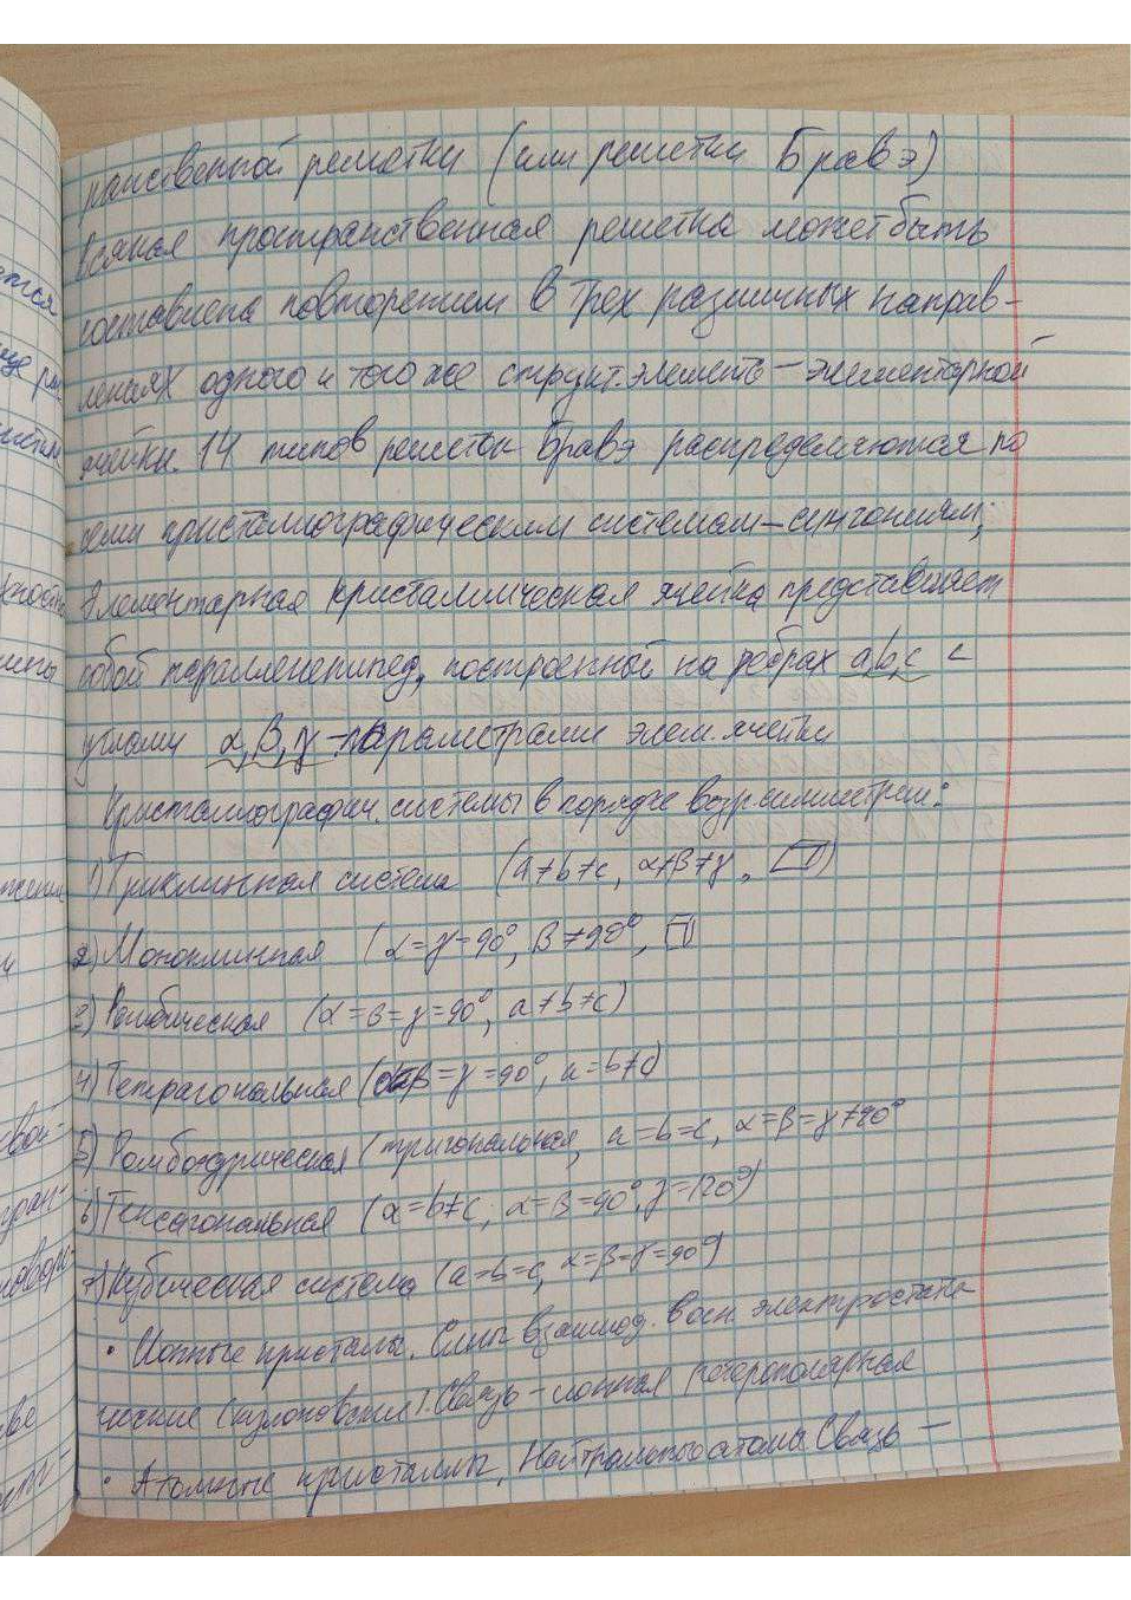 ранственной решетки (или решетки Бравэ)
Всякая пространственная решетка может быть
составлена повторением в трех различных направ-
лениях одного и того же структ. элемента – элементарной
ячейки. 14 типов решеток Бравэ распределяются по
семи кристаллографическим системам – сингониям;
Элементарная кристаллическая ячейка представляет
собой параллелепипед, построенный на ребрах a, b, c с
углами α, β, γ - параметрами элем. ячейки
Кристаллографич. системы в порядке возр. симметрии:
1) Триклинная система (a≠b≠c, α≠β≠γ, )
2) Моноклинная (α=γ=90°, β≠90°,
3) Ромбическая (α=β=γ=90°, a≠b≠c)
4) Тетрагональная (α=β=γ=90°, a=b≠c)
5) Ромбоэдрическая (тригональная, a=b=c, α=β=γ≠90°
6) Гексагональная (a=b≠c, α=β=90°, γ=120°)
7) Кубическая система (a=b=c, α=β=γ=90°)
• Ионные кристалы. Силы взаимод. в осн. электростати
ческие (кулоновские). Связь – ионная (гетерополярная
• Атомные кристаллы, Нейтральные атомы Связь –